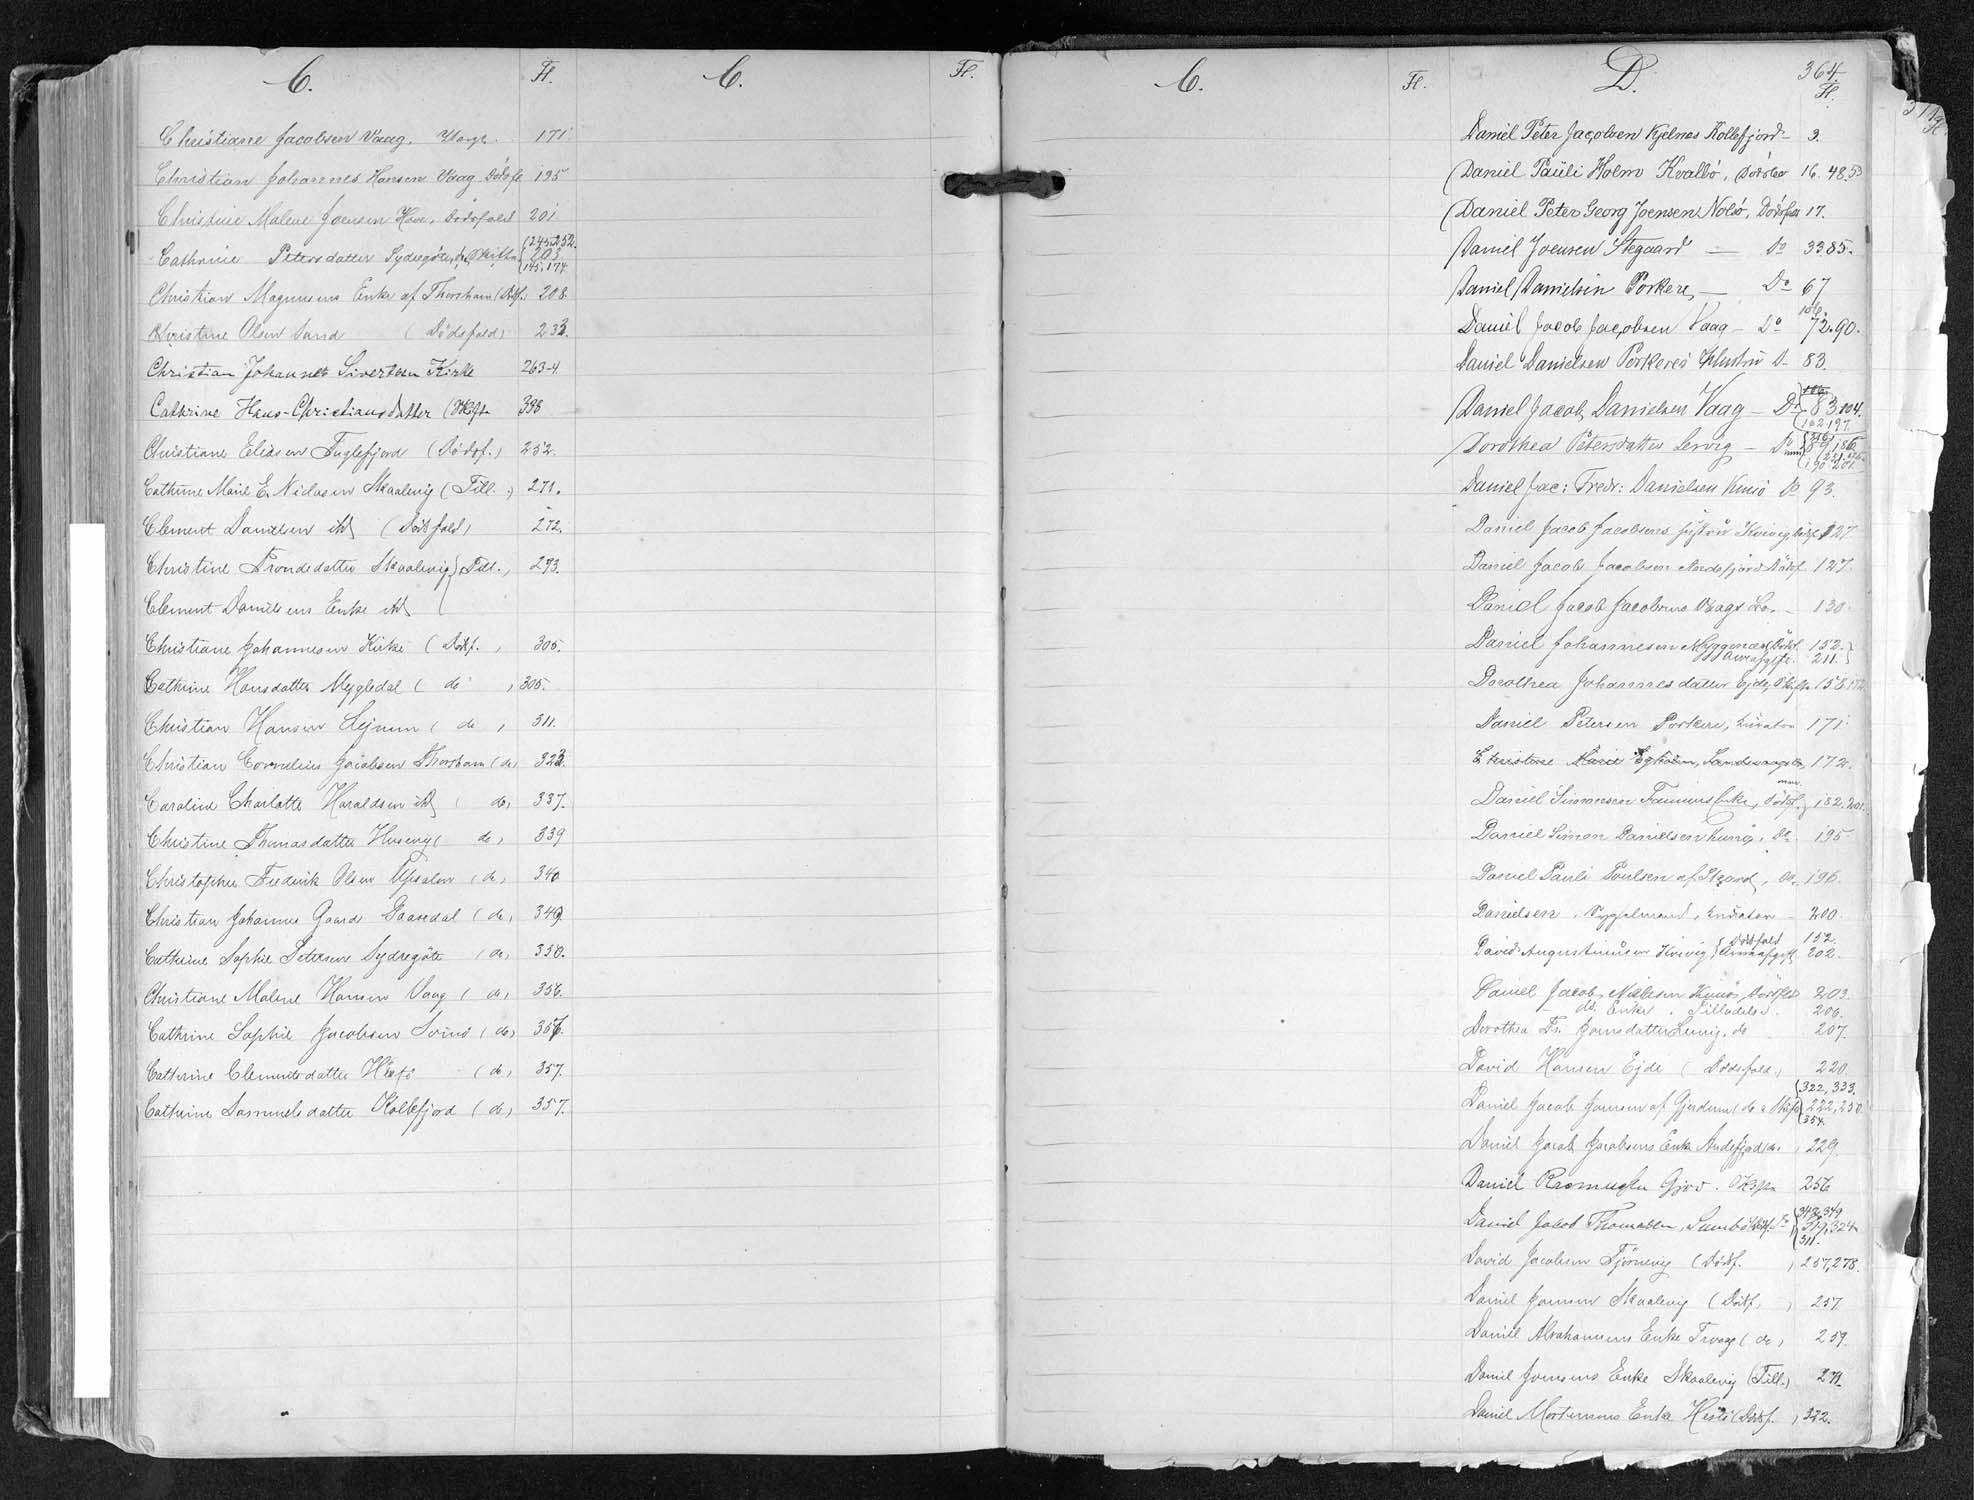 C. Fl. C. Fl.
Christiane Jacobsen Vaag, 171
Christian Johannes Hansen Vaag Dödsf 195
Christine Malene Joensen Hove, Dödsfald 201
(245.252.
Cathrine Petersdatter Sydregöte, Skifte 203
(145.174
Christian Magnusens Enke af Thorshavn (Dödsf. 208
Christine Olsen Sand (Dödsfald) 233.
Christian Johannes Sivertsen Kirke 263-4
Cathrine Hans-Christiansdatter (Skift 398
Christiane Eliasen Fuglefjord (Dödsf.) 252.
Cathrine Marie E. Niclasen Skaalevig (Till.) 271.
Clement Danielsen ibd (Dödsfald) 272.
Christine Trondsdatter Skaalevig } Till., 293.
Clement Danielsens Enke ibd
Christiane Johannesen Kirke (Dödsf., 305.
Cathrine Hansdatter Mygledal (do, 305.
Christian Hansen Lejnum (do, 311.
Christian Cornelius Jacobsen Thorshavn (do) 323.
Caroline Charlotte Haraldsen ibd (do) 337.
Christine Thomasdatter Husevig (do) 339
Christopher Frederik Olsen (do) 340
Christian Johannes Gaard Saxedal (do) 349.
Cathrine Sophie Petersen Sydregöte (do) 350.
Christiane Malene Hansen Vaag (do) 356.
Cathrine Sophie Jacobsen Svinö (do) 356.
Cathrine Clementsdatter Hestö (do) 357.
Cathrine Sammelsdatter Kollefjord (do) 357.
C. Fl. D. 364.
Fl.
Daniel Peter Jacobsen Kjelnes Kollefjord - 3.
Daniel Pauli Holm Kvalbö, Dödsbo 16. 48.53
Daniel Peter Georg Joensen Nolsö, Dödsfald 17.
Daniel Joensen Stegaard — Do 33 85.
Daniel Danielsen Porkere, — Do 67
106.
Daniel Jacob Jacobsen Vaag - Do 72.90.
Daniel Danielsen Porkeres Hustru D- 83.
Daniel Jacob Danielsen Vaag - Do 83.104.
102.197.
Dorothea Petersdatter Lervig - Do 89.186
190 201.
Daniel Jac: Fredr: Danielsen Kunö Do 93.
Daniel Jacob Jacobsens Hustru Kvivig, Dödsf. 127.
Daniel Jacob Jacobsen Andefjord Dödsf. 127.
Daniel Jacob Jacobsens Vaag Do. - 130
Daniel Johannesen Myggenæs Dödsf. 152.
Arveafgift. 211.
Dorothea Johannesdatter Ejde, Skifte 158.172.
Daniel Petersen Porkere, Kurator 171.
Christine Marie Egholm, Sandevaag 172.
Daniel Simonsen Famiens Enke, Dödsf. 182.201.
Daniel Simon Danielsen Kunö, Do. 195
Daniel Pauli Poulsen af Skaard, Do. 196.
Danielsen, Sysselmand, Kurator - 200.
David Augustinusen Kvivig { Dödsfald 152.
Arveafgift 202.
Daniel Jacob Nielsen Kunö, Dödsfald 203.
ds. Enke. Tilladelse. 206.
Dorothea Fr. Joensdatter Lervig, do 207.
David Hansen Ejde (Dödsfald) 220.
(322, 333.
Daniel Jacob Joensen af Gjerdum (do & Skifte 222, 250.
354.
Daniel Jacob Jacobsens Enke Andefjord (do, 229.
Daniel Rasmussen Gjov. Skifte 256
348,349
Daniel Jacob Thomassen, Sumbö Dödsf. 319,324.
311.
David Jacobsen Tjörnevig (Dödsf. ) 257,278.
Daniel Joensen Skaalevig (Dödsf. ) 257
Daniel Abrahamsens Enke Trongs (do) 259.
Daniel Joensens Enke Skaalevig (Till.) 271.
Daniel Mortensens Enke Hestö (Dödsf. ) 322.